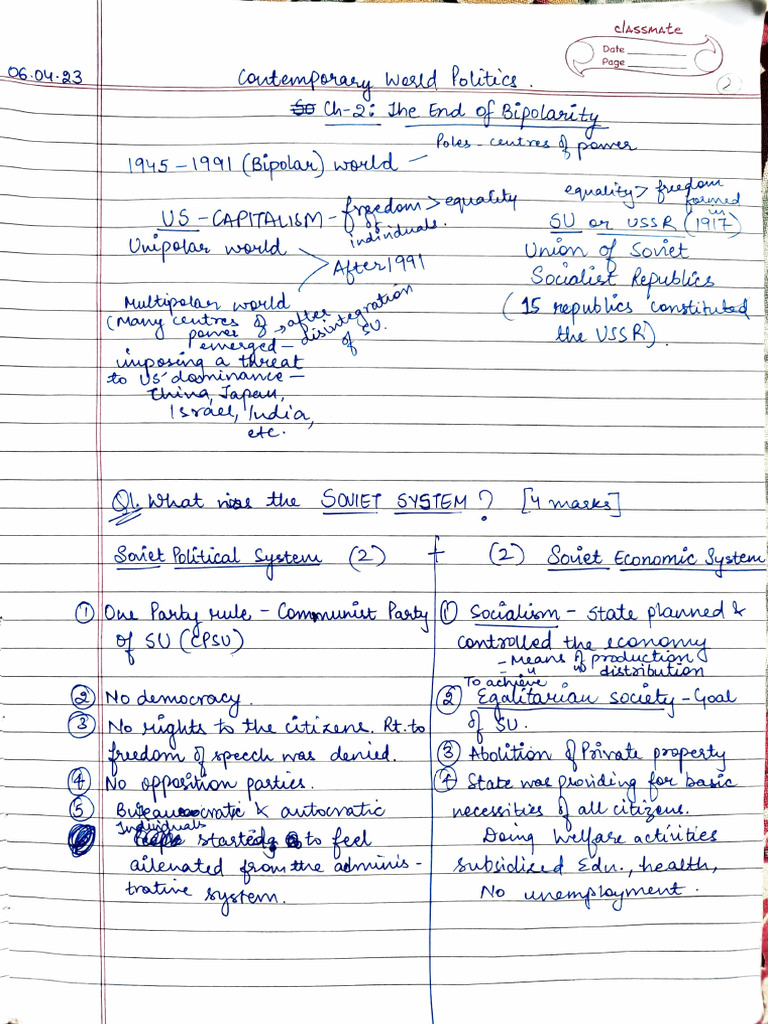 classmate
Date
Page
2
06.04.23
Contemporary World Politics.
Ch-2: The End of Bipolarity
1945-1991 (Bipolar) world - Poles - centres of power
US - CAPITALISM - freedom > equality
individuals.
Unipolar world
After 1991
Multipolar world
(Many centres of power emerged → after disintegration of SU.
imposing a threat
to US dominance -
China, Japan,
Israel, India,
etc.
equality > freedom
formed in
SU or USSR (1917)
Union of Soviet
Socialist Republics
(15 republics constituted
the USSR).
Q1. What was the SOVIET SYSTEM? [4 marks]
Soviet Political System (2) + (2) Soviet Economic System
① One Party rule - Communist Party
of SU (CPSU)
② No democracy.
③ No rights to the citizens. Rt. to
freedom of speech was denied.
④ No opposition parties.
⑤ Bureaucratic & autocratic
Individuals
started to feel
ailenated from the adminis-
trative system.
① Socialism - State planned &
controlled the economy
- Means of production
- " " distribution
To achieve
② Egalitarian society - Goal
of SU.
③ Abolition of Private property
④ State was providing for basic
necessities of all citizens.
Doing Welfare activities
subsidized Edn., health,
No unemployment.